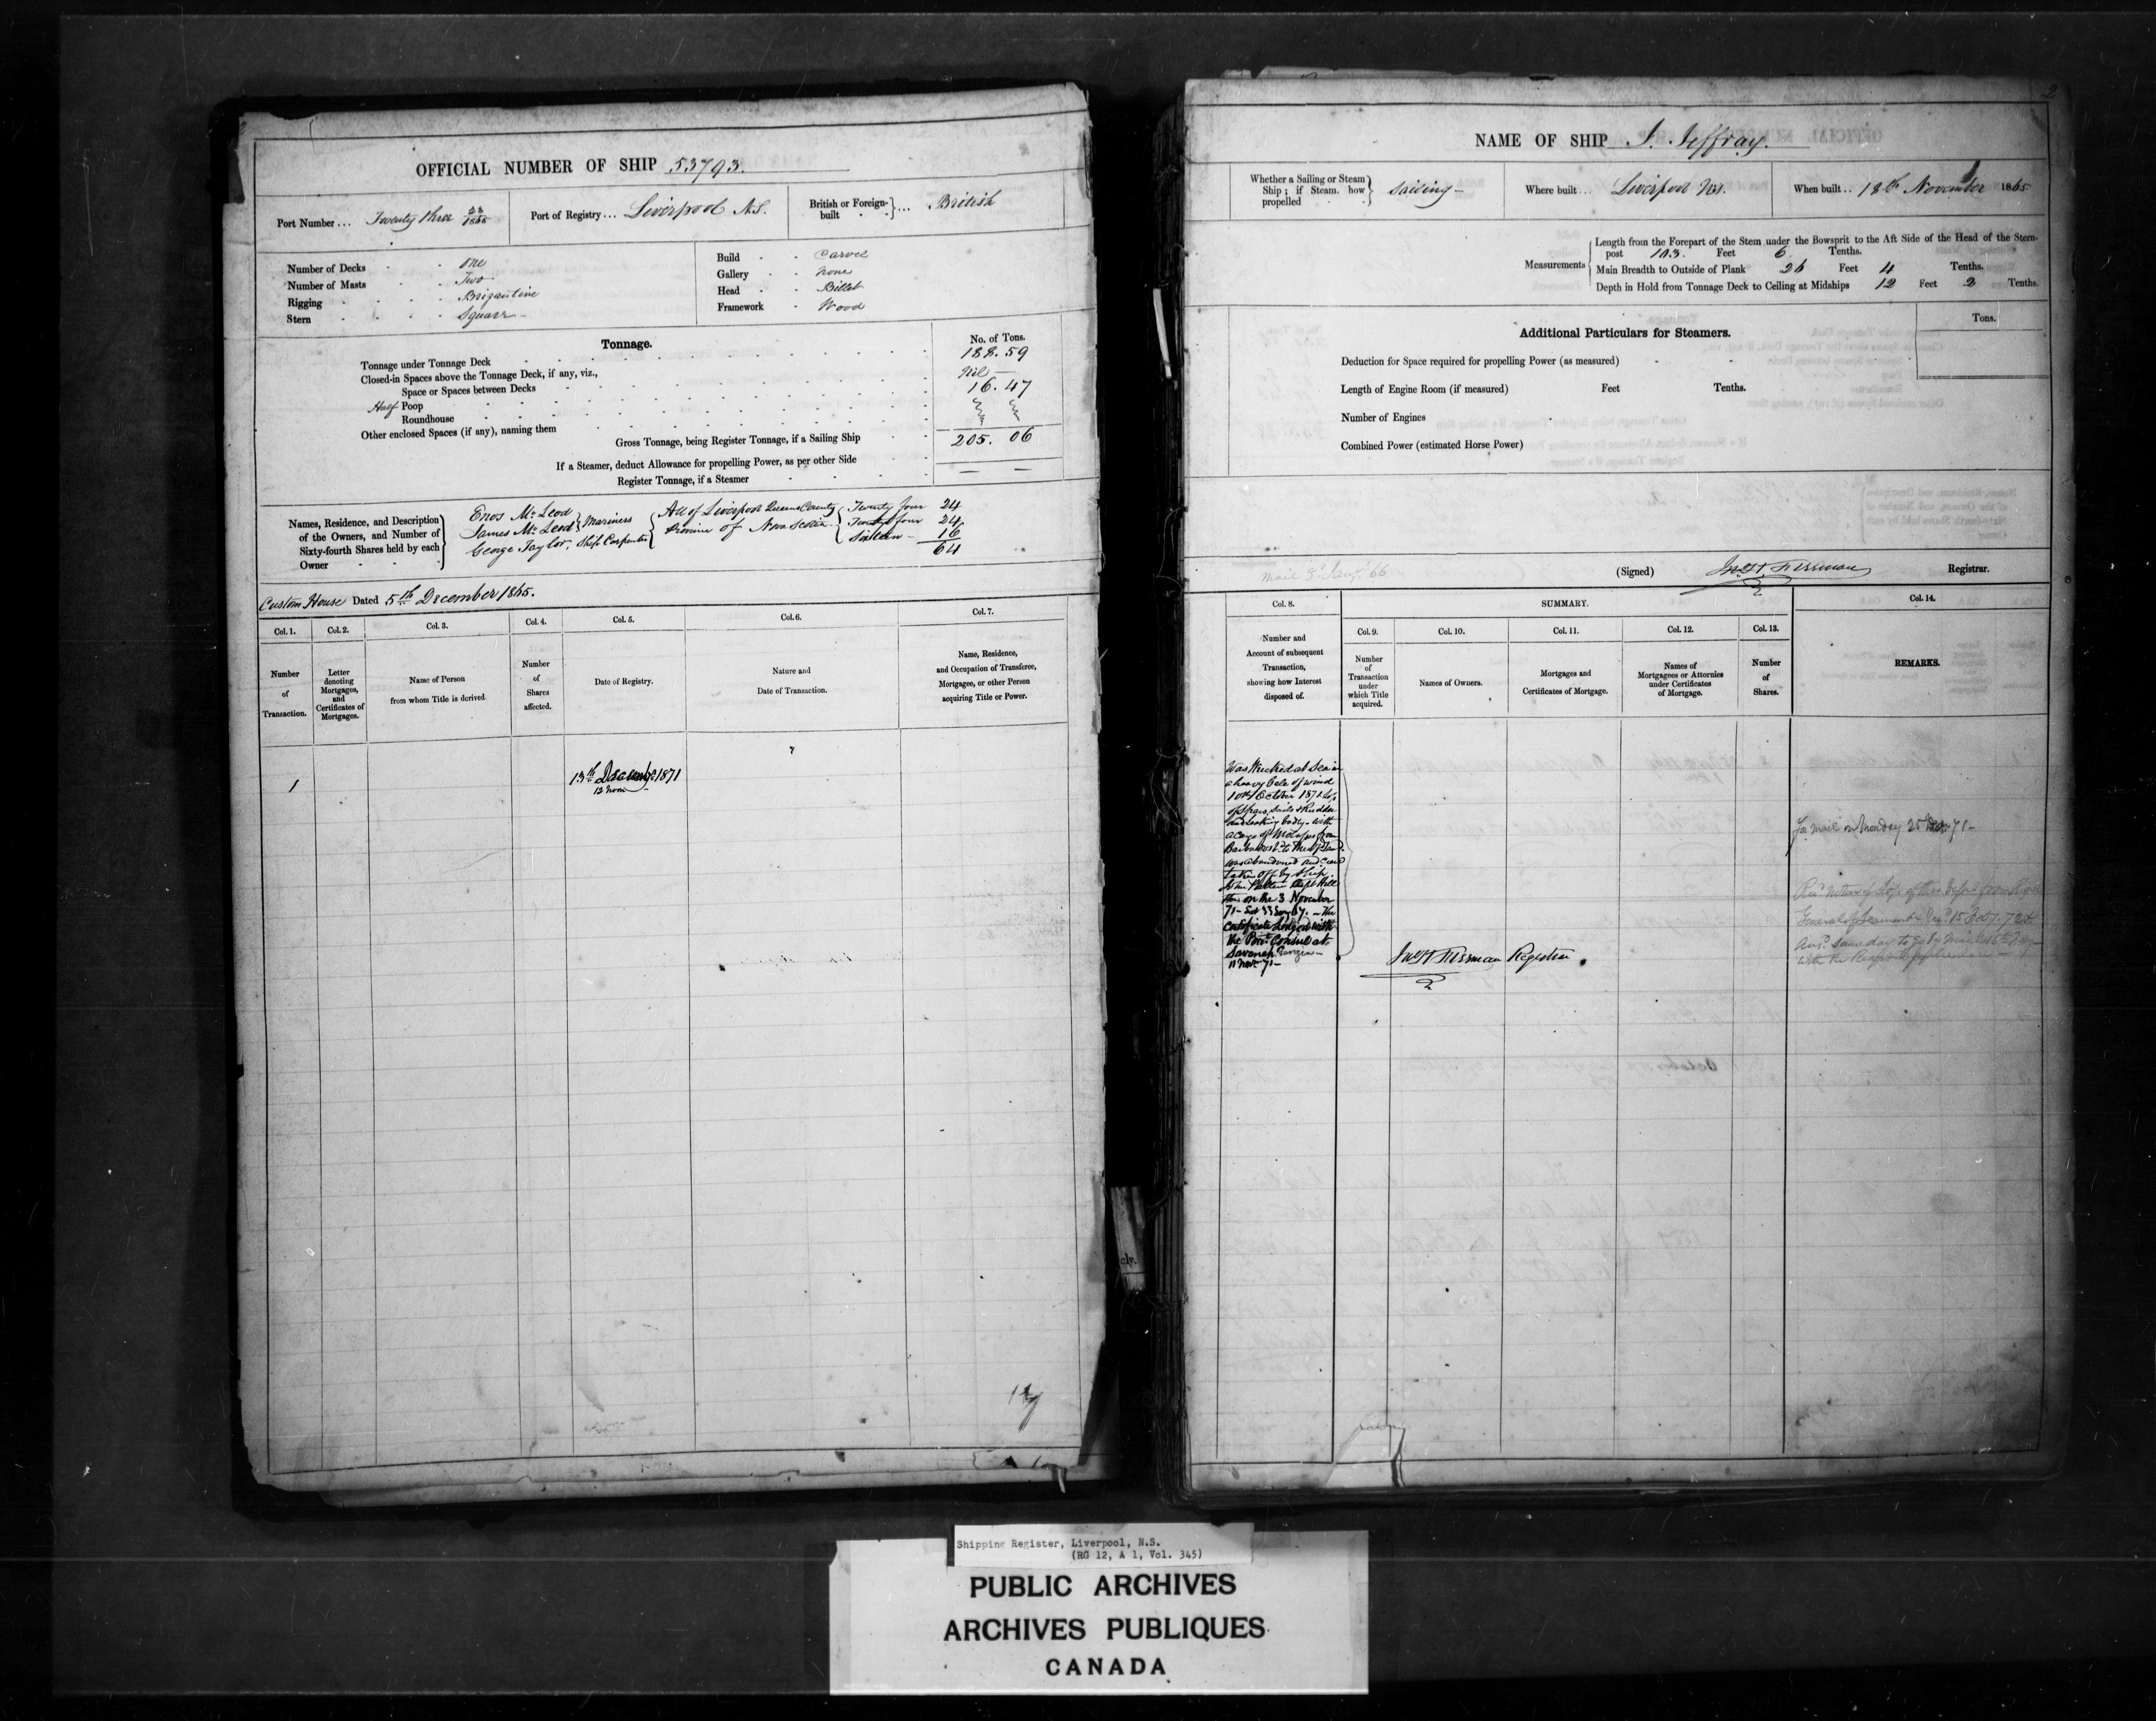 OFFICIAL NUMBER OF SHIP 53793.
Port Number ... Twenty three 23/1865
Port of Registry ... Liverpool N.S.
British or Foreign-built ... British
Number of Decks One
Number of Masts Two
Rigging Brigantine
Stern Square
Build Carvel
Gallery None
Head Billet
Framework Wood
Tonnage.
No. of Tons.
Tonnage under Tonnage Deck 188.59
Closed-in Spaces above the Tonnage Deck, if any, viz.,
Space or Spaces between Decks Nil
Half Poop 16.47
Roundhouse
Other enclosed Spaces (if any), naming them
Gross Tonnage, being Register Tonnage, if a Sailing Ship 205.06
If a Steamer, deduct Allowance for propelling Power, as per other Side
Register Tonnage, if a Steamer
Names, Residence, and Description of the Owners, and Number of Sixty-fourth Shares held by each Owner
Enos McLeod } Mariners { All of Liverpool Queens County { Twenty four 24
James McLeod } Province of Nova Scotia Twenty four 24
George Taylor, Ship Carpenter Sixteen 16
64
Custom House Dated 5th December 1865.
Col. 1. Col. 2. Col. 3. Col. 4. Col. 5. Col. 6. Col. 7.
Number of Transaction.
Letter denoting Mortgages, and Certificates of Mortgages.
Name of Person from whom Title is derived.
Number of Shares affected.
Date of Registry.
Nature and Date of Transaction.
Name, Residence, and Occupation of Transferee, Mortgagee, or other Person acquiring Title or Power.
1
13th December 1871
12 noon
2
NAME OF SHIP J. Jeffray.
Whether a Sailing or Steam Ship; if Steam, how propelled } Sailing
Where built ... Liverpool N.S.
When built .. 18th November 1865
Measurements
Length from the Forepart of the Stem under the Bowsprit to the Aft Side of the Head of the Stern-
post 103. Feet 6 Tenths.
Main Breadth to Outside of Plank 26 Feet 4 Tenths.
Depth in Hold from Tonnage Deck to Ceiling at Midships 12 Feet 2 Tenths.
Additional Particulars for Steamers.
Tons.
Deduction for Space required for propelling Power (as measured)
Length of Engine Room (if measured) Feet Tenths.
Number of Engines
Combined Power (estimated Horse Power)
Mail 3d Jany. 66
(Signed) Registrar.
Col. 8. SUMMARY. Col. 14.
Col. 9. Col. 10. Col. 11. Col. 12. Col. 13.
Number and Account of subsequent Transaction, showing how Interest disposed of.
Number of Transaction under which Title acquired.
Names of Owners.
Mortgages and Certificates of Mortgage.
Names of Mortgagees or Attornies under Certificates of Mortgage.
Number of Shares.
REMARKS.
Was Wrecked at Sea in
a heavy Gale of wind
10th October 1871
of Spars, Sails & Rudder
and leaking badly with
a cargo of Molasses from
was abandoned and crew
taken off by Ship
on the 3 November
Certificate Lodged with
the Brit. Consul at
Savanah Georgia
11 Novr 71
For mail on Monday 25 Decr 71
Registrar
Shipping Register, Liverpool, N.S.
(RG 12, A 1, Vol. 345)
PUBLIC ARCHIVES
ARCHIVES PUBLIQUES
CANADA